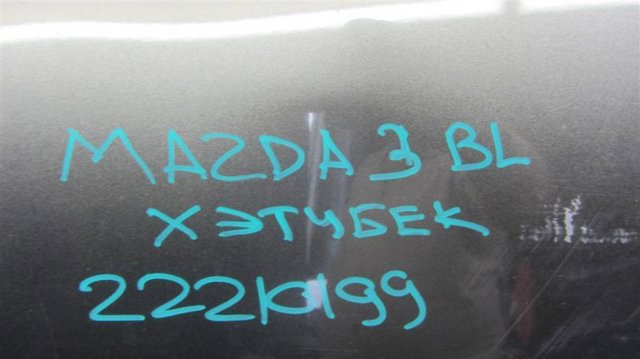 MAZDA 3 BL
ХЭТЧБЕК
22210199